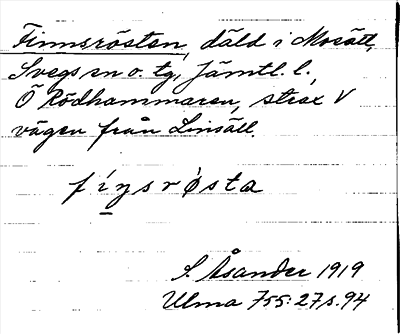 Finnsrösten, däld i Mosätt,
Svegs sn o. tg, Jämtl. l.,
Ö Rödhammaren, strax V
vägen från Linsäll.
fi̱nsrösta
S. Åsander 1919
Ulma 755:27 s. 94